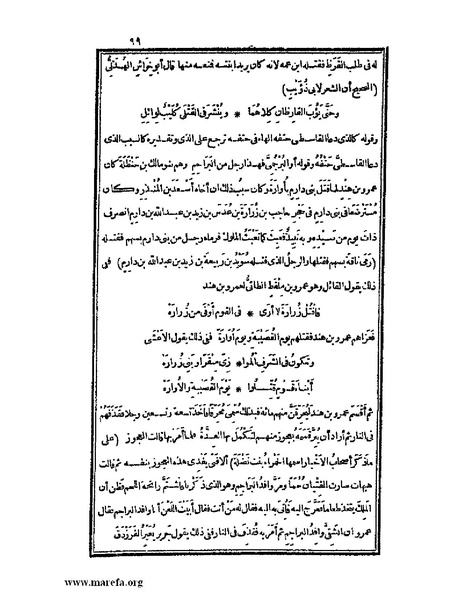 ٩٩
له فى طلب القرظ فقتله ابن عمه لانه كان يريد ابنته فمنعه منها قال أبو خراش الهذلىّ
(الصحيح أن الشعر لابى ذُؤَيب)
وحَتَّى يَؤُب القارِظانِ كِلاهُما * ويُنْشَرَ فى القَتْلَى كُلَيبٌ لوائِل
وقوله كالذى دعا القاسطىّ حتفه الهاء فى حتفه ترجع على الذى وتقديره كالسبب الذى
دعا القاسطىَّ حَتْفُهُ وقوله أو البُرْجُمىّ فهذا رجل من البراجم وهم بنو مالك بن حَنظَلَة كان
عمرو بن هند لما قتل بنى دارم بأُوارَةَ وكان سبب ذلك ان أخاه أسعد بن المُنذِر وكان
مُسْتَرْضَعًا فى بنى دارم فى حَجْر حاجب بن زُرارَةَ بن عُدَس بن زيد بن عبد الله بن دارم انصرف
ذات يوم من صَيْدِه وبه نَبيذٌ فعَبِثَ كما تَعْبَثُ الملوك فرماه رجل من بنى دارم بسهم فقتله
(رَمَى ناقة بسهم فقتلها والرجلُ الذى قتله سُوَيْدُ بن رَبيعة بن زيد بن عبد الله بن دارم) فى
ذلك يقول القائل وهو عمرو بن مِلْقَط الطائىُّ لعمرو بن هند
فاقْتُلْ زُرارَةَ لا أَرى * فى القوم أوْفَى من زُرارَهْ
فغزاهم عمرو بن هند فقتلهم يوم القُصَيْبة ويوم أُوارَةَ فى ذلك يقول الاَعْشَى
وتكونُ فى الشَّرَفِ المُوا * زِى مِنْقَرًا وبَنِى زُرارَهْ
أبناءَ قَومٍ قُتِّلُوا * يَوْمَ القُصَيْبةِ والأُوارَهْ
ثم أقسم عمرو بن هند ليُحرِقَنَّ منهم مائة فبذلك سُمِّىَ مُحَرِّقًا فأخذ تسعة وتسعين رجلا فقذفهم
فى النار ثم أراد أن يُبِرَّ قَسَمه بعجوز منهم لتَكْمُل بها العِدَّةُ فلما أمَر بها قالت العجوز (على
ماذكر أصحاب الاخبار اسمها الحمراء بنت نَضْلة) ألا فتى يَفْدى هذه العجوز بنفسه ثم قالت
هيهات صارت الفِتْيان حُمَمًا ومرّ وافدُ البراجم وهو الذى ذَكَرْنا فاشْتَمَّ رائحة اللحم فظن أن
الملك يتخذ طعاما فعَرَّج اليه فأُتِىَ به اليه فقال له مَن أنت فقال أبيتَ اللعن أنا وافد البراجم فقال
عمرو ان الشَّقِىَّ وافِدُ البراجم ثم أمَر به فقُذِفَ فى النار ففى ذلك يقول جرير يُعَيِّر الفرزدق
www.marefa.org